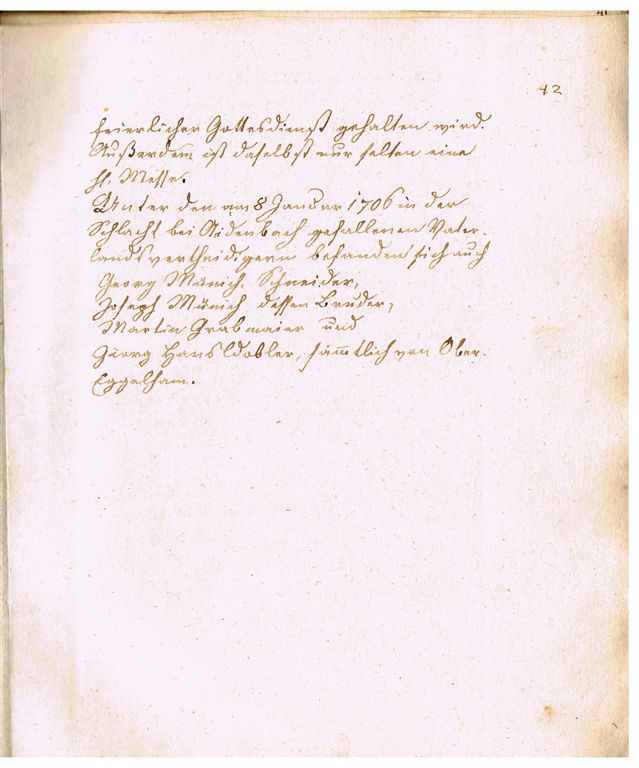 41
42
feierlicher Gottesdienst gehalten wird.
Außerdem ist daselbst nur selten eine
hl. Messe.
Unter den am 8 Januar 1706 in der
Schlacht bei Aidenbach gefallenen Vater-
landsvertheidigern befanden sich auch
Georg Münich, Schneider,
Joseph Münich dessen Bruder,
Martin Grabmaier und
Georg Hansldobler, sämmtlich von Ober-
Eggelham.